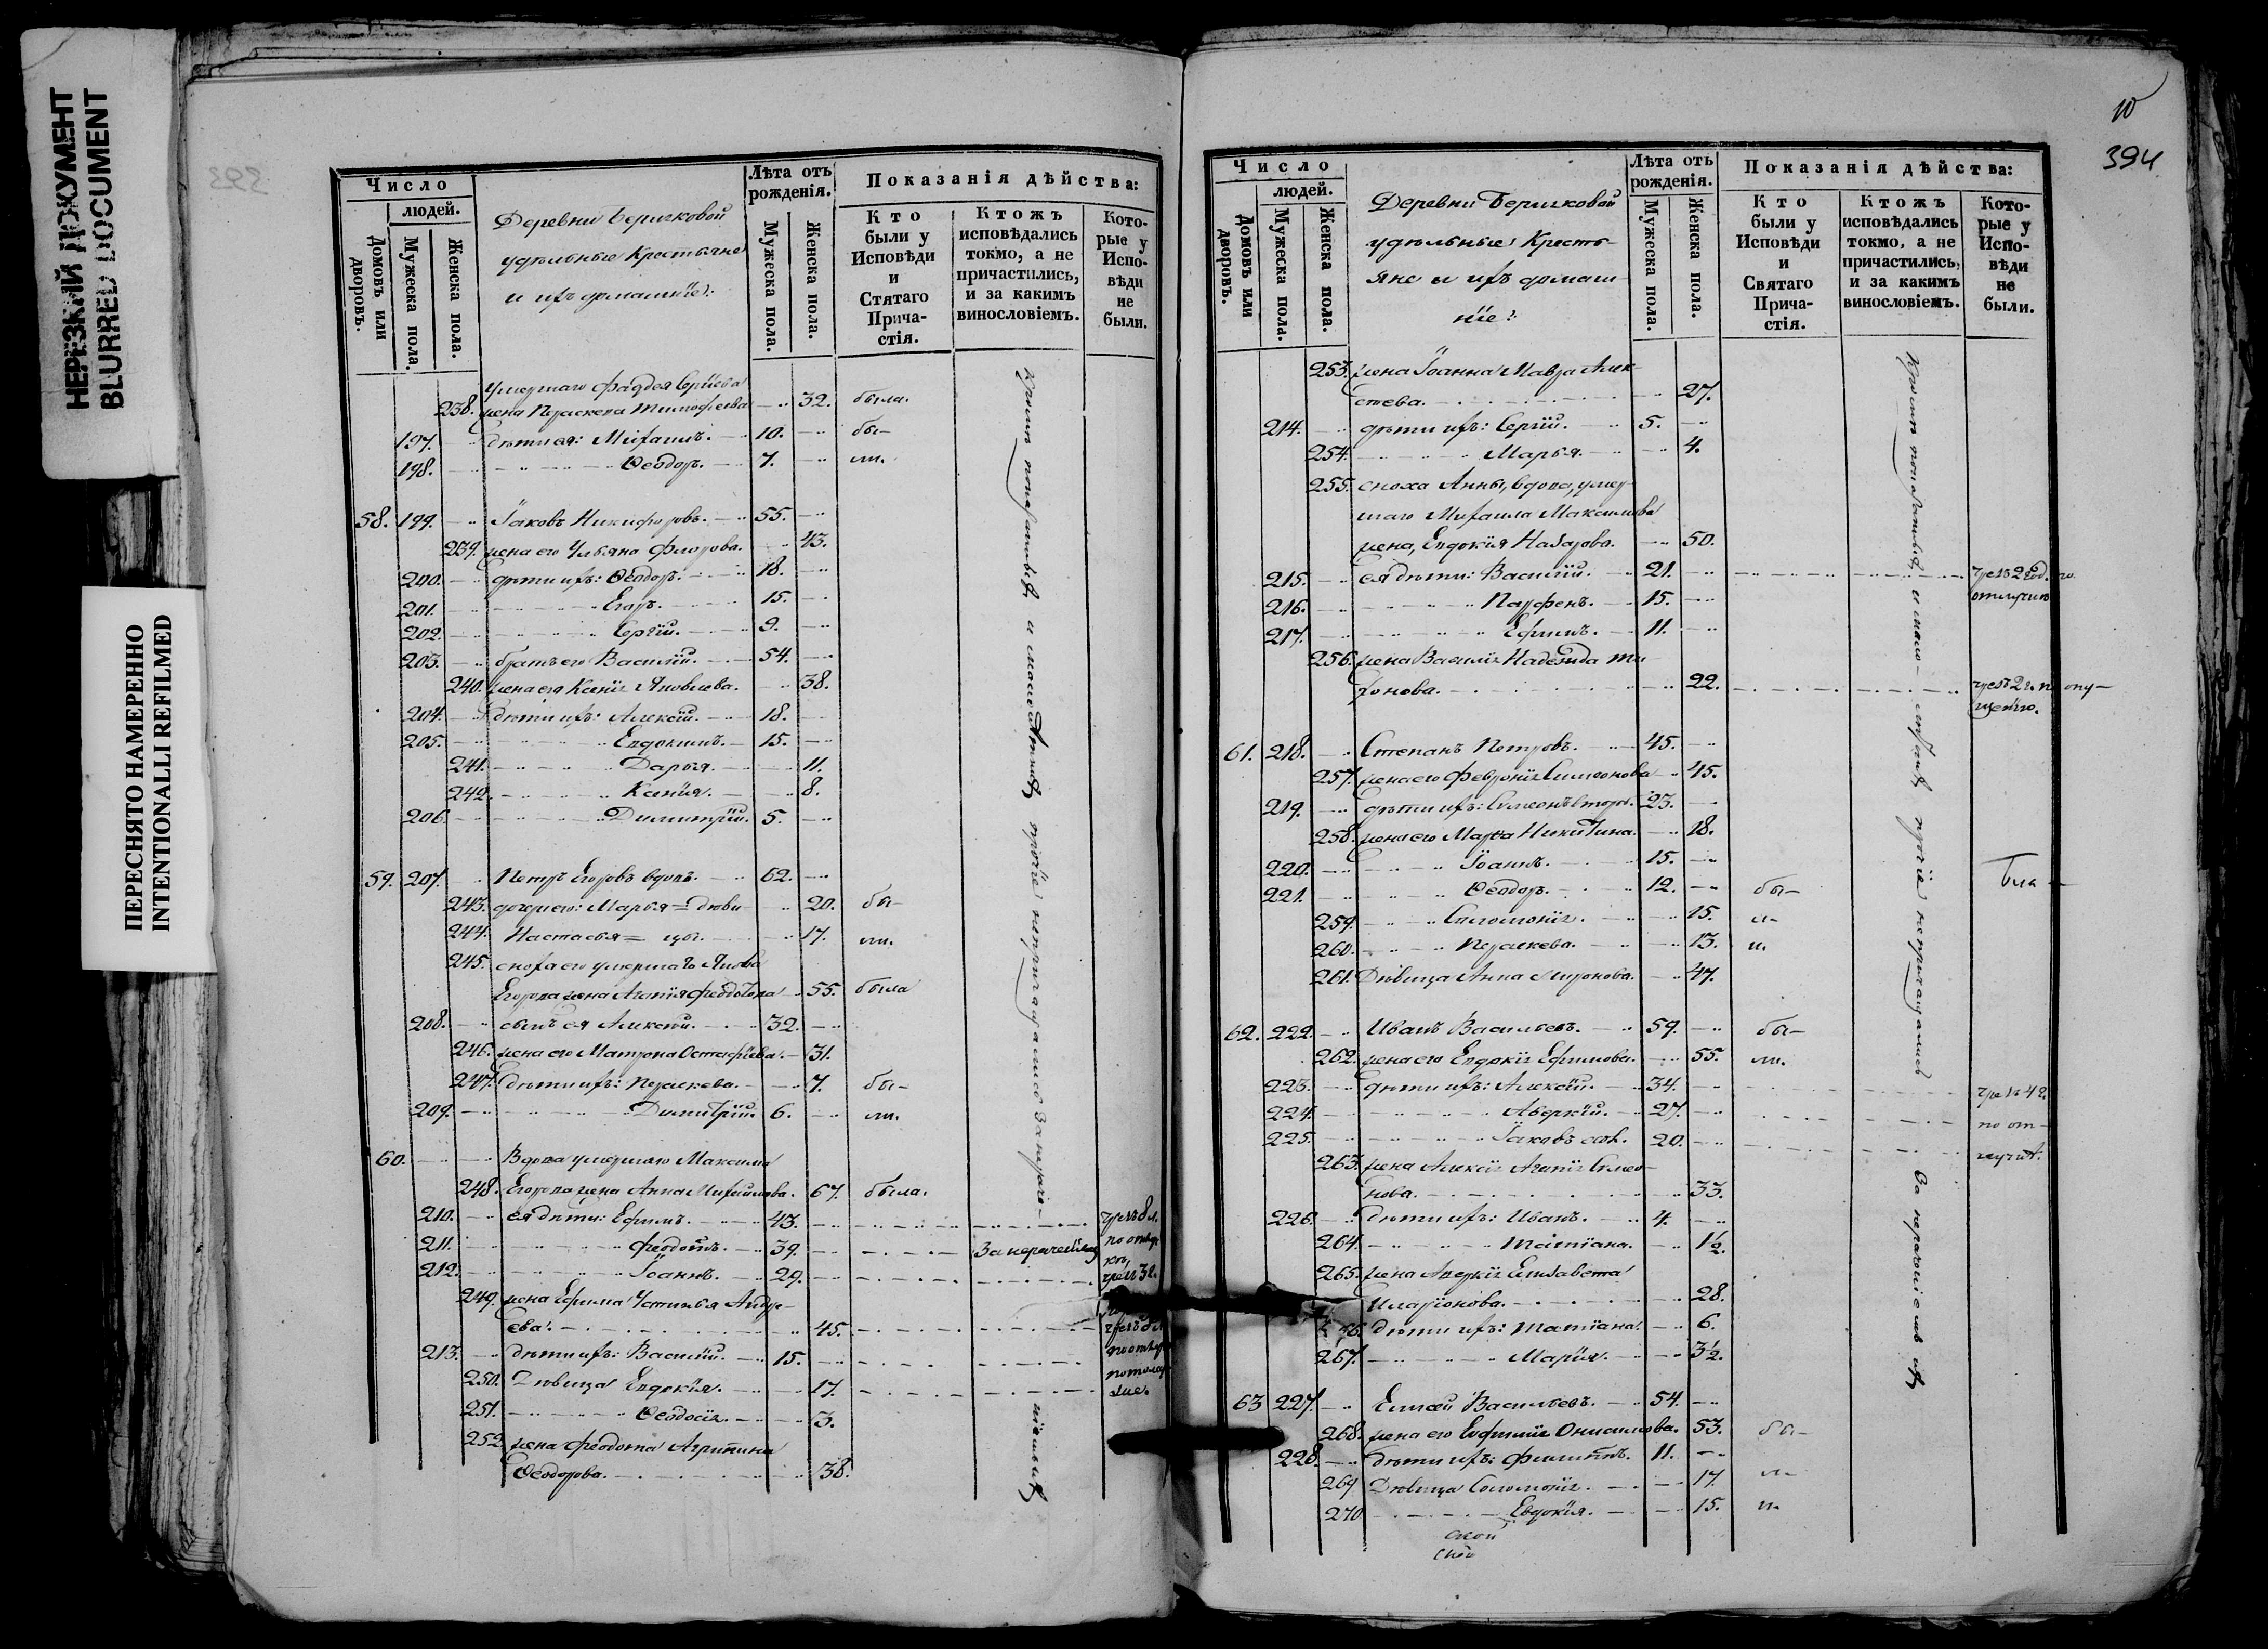 НЕРЕЗКИЙ ДОКУМЕНТ
BLURRED DOCUMENT
ПЕРЕСНЯТО НАМЕРЕННО
INTENTIONALLI REFILMED
Число
людей.
Домовъ или дворовъ.
Мужеска пола.
Женска пола.
Деревни Беричковой
удѣльные Крестьяне
и ихъ домашніе:
Лѣта отъ рожденія.
Мужеска пола.
Женска пола.
Показанія дѣйства:
Кто были у Исповѣди и Стятаго Прича-стія.
Ктожъ исповѣдались токмо, а не причастились, и за какимъ винословіемъ.
Кото-рые у Испо-вѣди не были.
умершаго Фаддея Сергіева
238. жена Параскева Тимофеева 32. была.
197. дѣти ея: Михаилъ. 10. бы-
198. Ѳеодоръ. 7. ли.
58. 199. Іаковъ Никифоровъ. 55.
239. жена его Ульяна Флорова. 43.
200. дѣти ихъ: Ѳеодоръ. 18.
201. Егоръ. 15.
202. Сергій. 9.
203. братъ его Василій. 54.
240. жена его Ксенія Яковлева. 38.
204. дѣти ихъ: Алексій. 18.
205. Евдокимъ. 15.
241. Дарья. 11.
242. Ксенія. 8.
206. Димитрій. 5.
59. 207. Петръ Егоровъ вдовъ. 62.
243. дочери его: Марья = дѣви 20. бы-
244. Настасья = цы. 17. ли.
245. сноха его умершаго Якова
Егорова жена Агапія Ѳеодотова 55. была
208. сынъ ея Алексій. 32.
246. жена его Матрона Остафіева. 31.
247. дѣти ихъ: Параскева. 7. бы-
209. Димитрій. 6. ли.
60. Вдова умершаго Максима
248. Егорова жена Анна Михайлова. 67. была.
210. ея дѣти: Ефимъ. 43. чрезъ 8 л.
211. Феодотъ. 39. За нерачен
212. Іоаннъ. 29. чрезъ 3 г.
249. жена Ефима Устинья Андре-
ева. 45.
213. дѣти ихъ: Василій. 15.
250. Дѣвица Евдокія. 17.
251. Ѳеодосія. 3.
252. жена Феодота Агрипина
Ѳеодорова. 38.
10
394
Число
людей.
Домовъ или дворовъ.
Мужеска пола.
Женска пола.
Деревни Беричковой
удѣльные Кресть-
яне и ихъ домаш-
ніе:
Лѣта отъ рожденія.
Мужеска пола.
Женска пола.
Показанія дѣйства:
Кто были у Исповѣди и Святаго Прича-стія.
Ктожъ исповѣдались токмо, а не причастились, и за какимъ винословіемъ.
Кото-рые у Испо-вѣди не были.
253. жена Іоанна Мавра Алек-
сѣева. 27.
214. дѣти ихъ: Сергій. 5.
254. Марья. 4.
255. сноха Анны, вдова, умер-
шаго Михаила Максимова
жена, Евдокія Назарова. 50.
215. ея дѣти: Василій. 21.
216. Парфенъ. 15.
217. Ефимъ. 11.
256. жена Василія Надежда Ти-
хонова. 22.
61. 218. Степанъ Петровъ. 45.
257. жена его Февронія Симеонова 45.
219. дѣти ихъ: Симеонъ вторый. 23.
258. жена его Марѳа Никитина. 18.
220. Іоаннъ. 15.
221. Ѳеодоръ. 12. бы-
259. Соломонія. 15. л-
260. Параскева. 13. и.
261. Дѣвица Анна Миронова. 47.
62. 222. Иванъ Васильевъ. 59. бы-
262. жена его Евдокія Ефимова. 55. ли.
223. дѣти ихъ: Алексій. 34. чрезъ 4 г.
224. Аверкій. 27. по от-
225. Іаковъ хол. 20. лучкѣ.
263. жена Алексія Агапія Симео-
нова. 33.
226. дѣти ихъ: Иванъ. 4.
264. Татіана. 1½.
265. жена Аверкія Елизавета
Иларіонова. 28.
266. дѣти ихъ: Татіана. 6.
267. Марія. 3½.
63 227. Елисей Васильевъ. 54.
268. жена его Евфимія Онисимова. 53. бы-
228. дѣти ихъ: Филиппъ. 11.
269 Дѣвица Соломонія. 17. л-
270 Евдокія. 15. и.